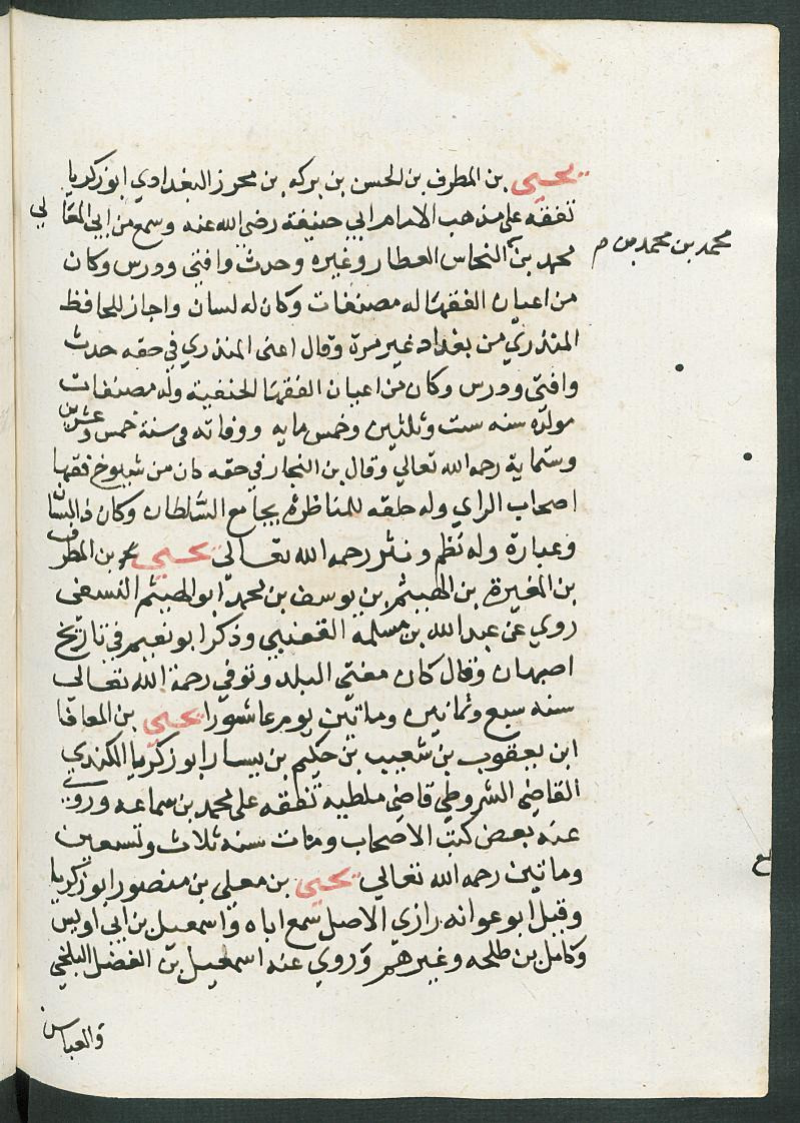 يحيى بن المطرف بن الحسن بن بركه بن محرز البغدادي ابو زكريا
تفقه على مذهب الامام ابي حنيفة رضى الله عنه وسمع من ابي المعالي
محمد بن النحاس العطار وغيره وحدث وافتى ودرس وكان
محمد بن محمد بن م
من اعيان الفقها له مصنفات وكان له لسان واجاز للحافظ
المنذري من بغداد غير مرة وقال اعنى المنذري في حقه حدث
وافتى ودرس وكان من اعيان الفقها الحنفية وله مصنفات
مولده سنه ست وثلثين وخمس مايه ووفاته في سنة خمس وعشرين
وستماية رحمه الله تعالي وقال بن النجار في حقه كان من شيوخ فقها
اصحاب الراي وله حلقه للمناظرة بجامع السلطان وكان ذا لسان
وعبارة وله نظم ونثر رحمه الله تعالى يحيى بن المطرف
بن المغيرة بن الهيثم بن يوسف بن محمد ابو الهيثم النسفى
روي عن عبد الله بن مسلمة القعنبي وذكر ابو نعيم في تاريخ
اصبهان وقال كان مفتى البلد وتوفي رحمة الله تعالى
سنه سبع وثمانين وماتين يوم عاشورا يحيى بن المعافا
ابن يعقوب بن شعيب بن حكيم بن يسار ابو زكريا الكندي
القاضي الشروطي قاضي ملطيه تفقه على محمد بن سماعه وروي
عنه بعض كتب الاصحاب ومات سنه ثلاث وتسعين
وماتين رحمه الله تعالي يحيى بن معلى بن منصور ابو زكريا
وقيل ابو عوانه رازي الاصل سمع اباه واسمعيل بن ابي اويس
وكامل بن طلحه وغيرهم وروي عنه اسمعيل بن الفضل البلخي
والعباس